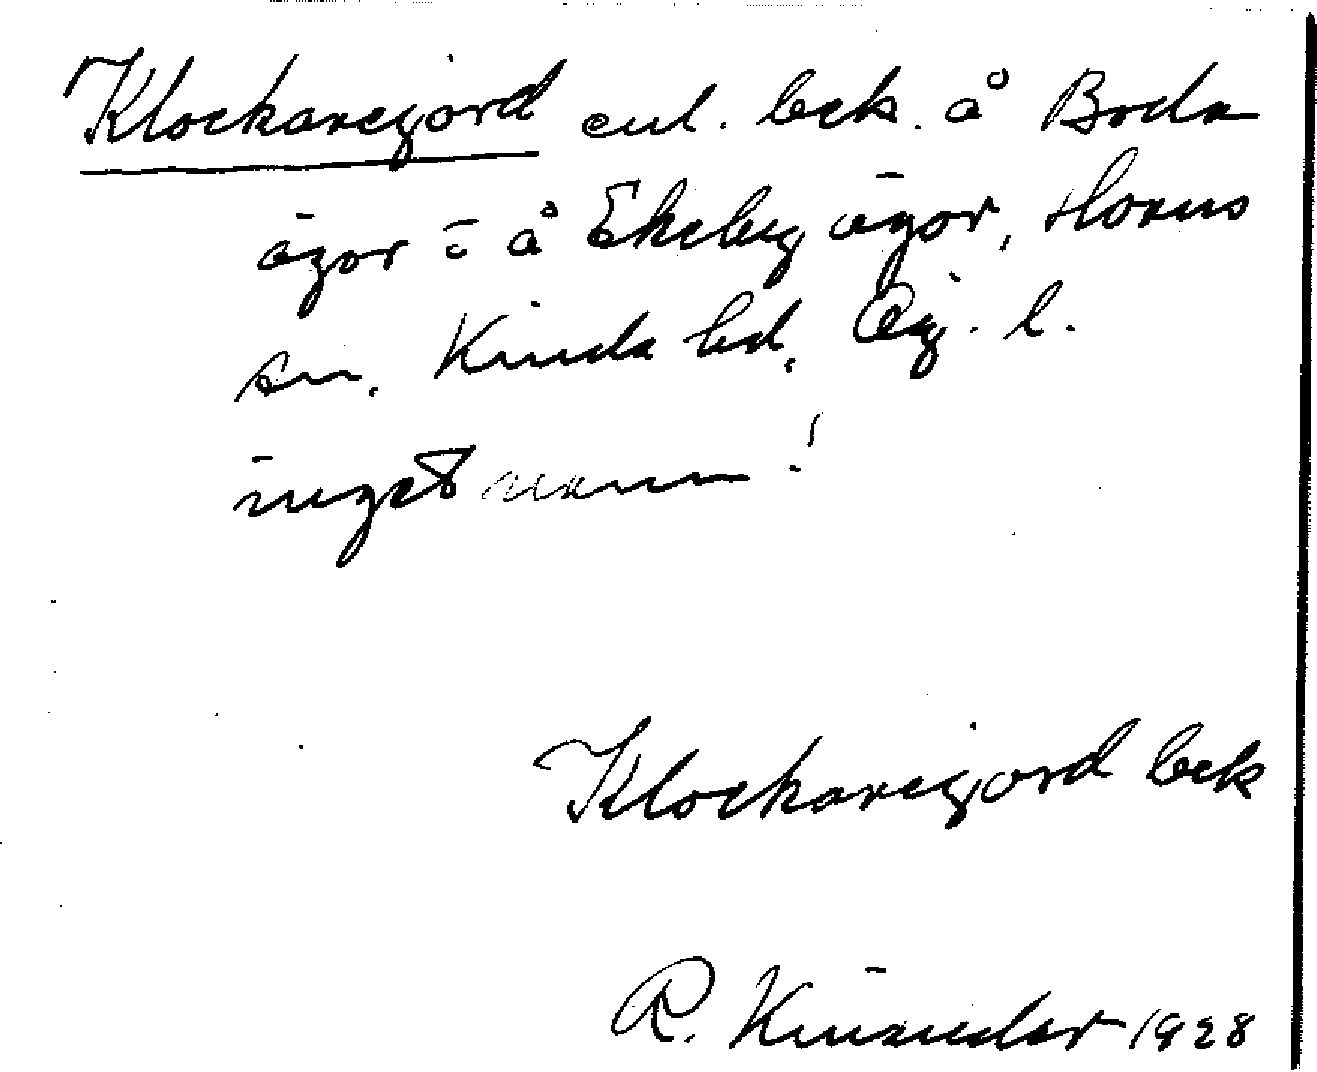 Klockaregård enl. bek. å Boda
ägor o å Ekeby ägor, Horns
sn. Kinda hd. Ög. l.
inget namn!
Klockaregård bek
R. Kinander 1928